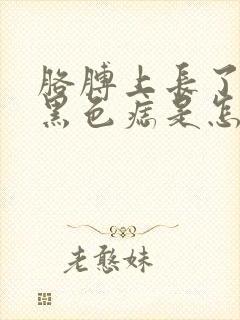 胳膊上长了
黑色痣是怎
老憨妹